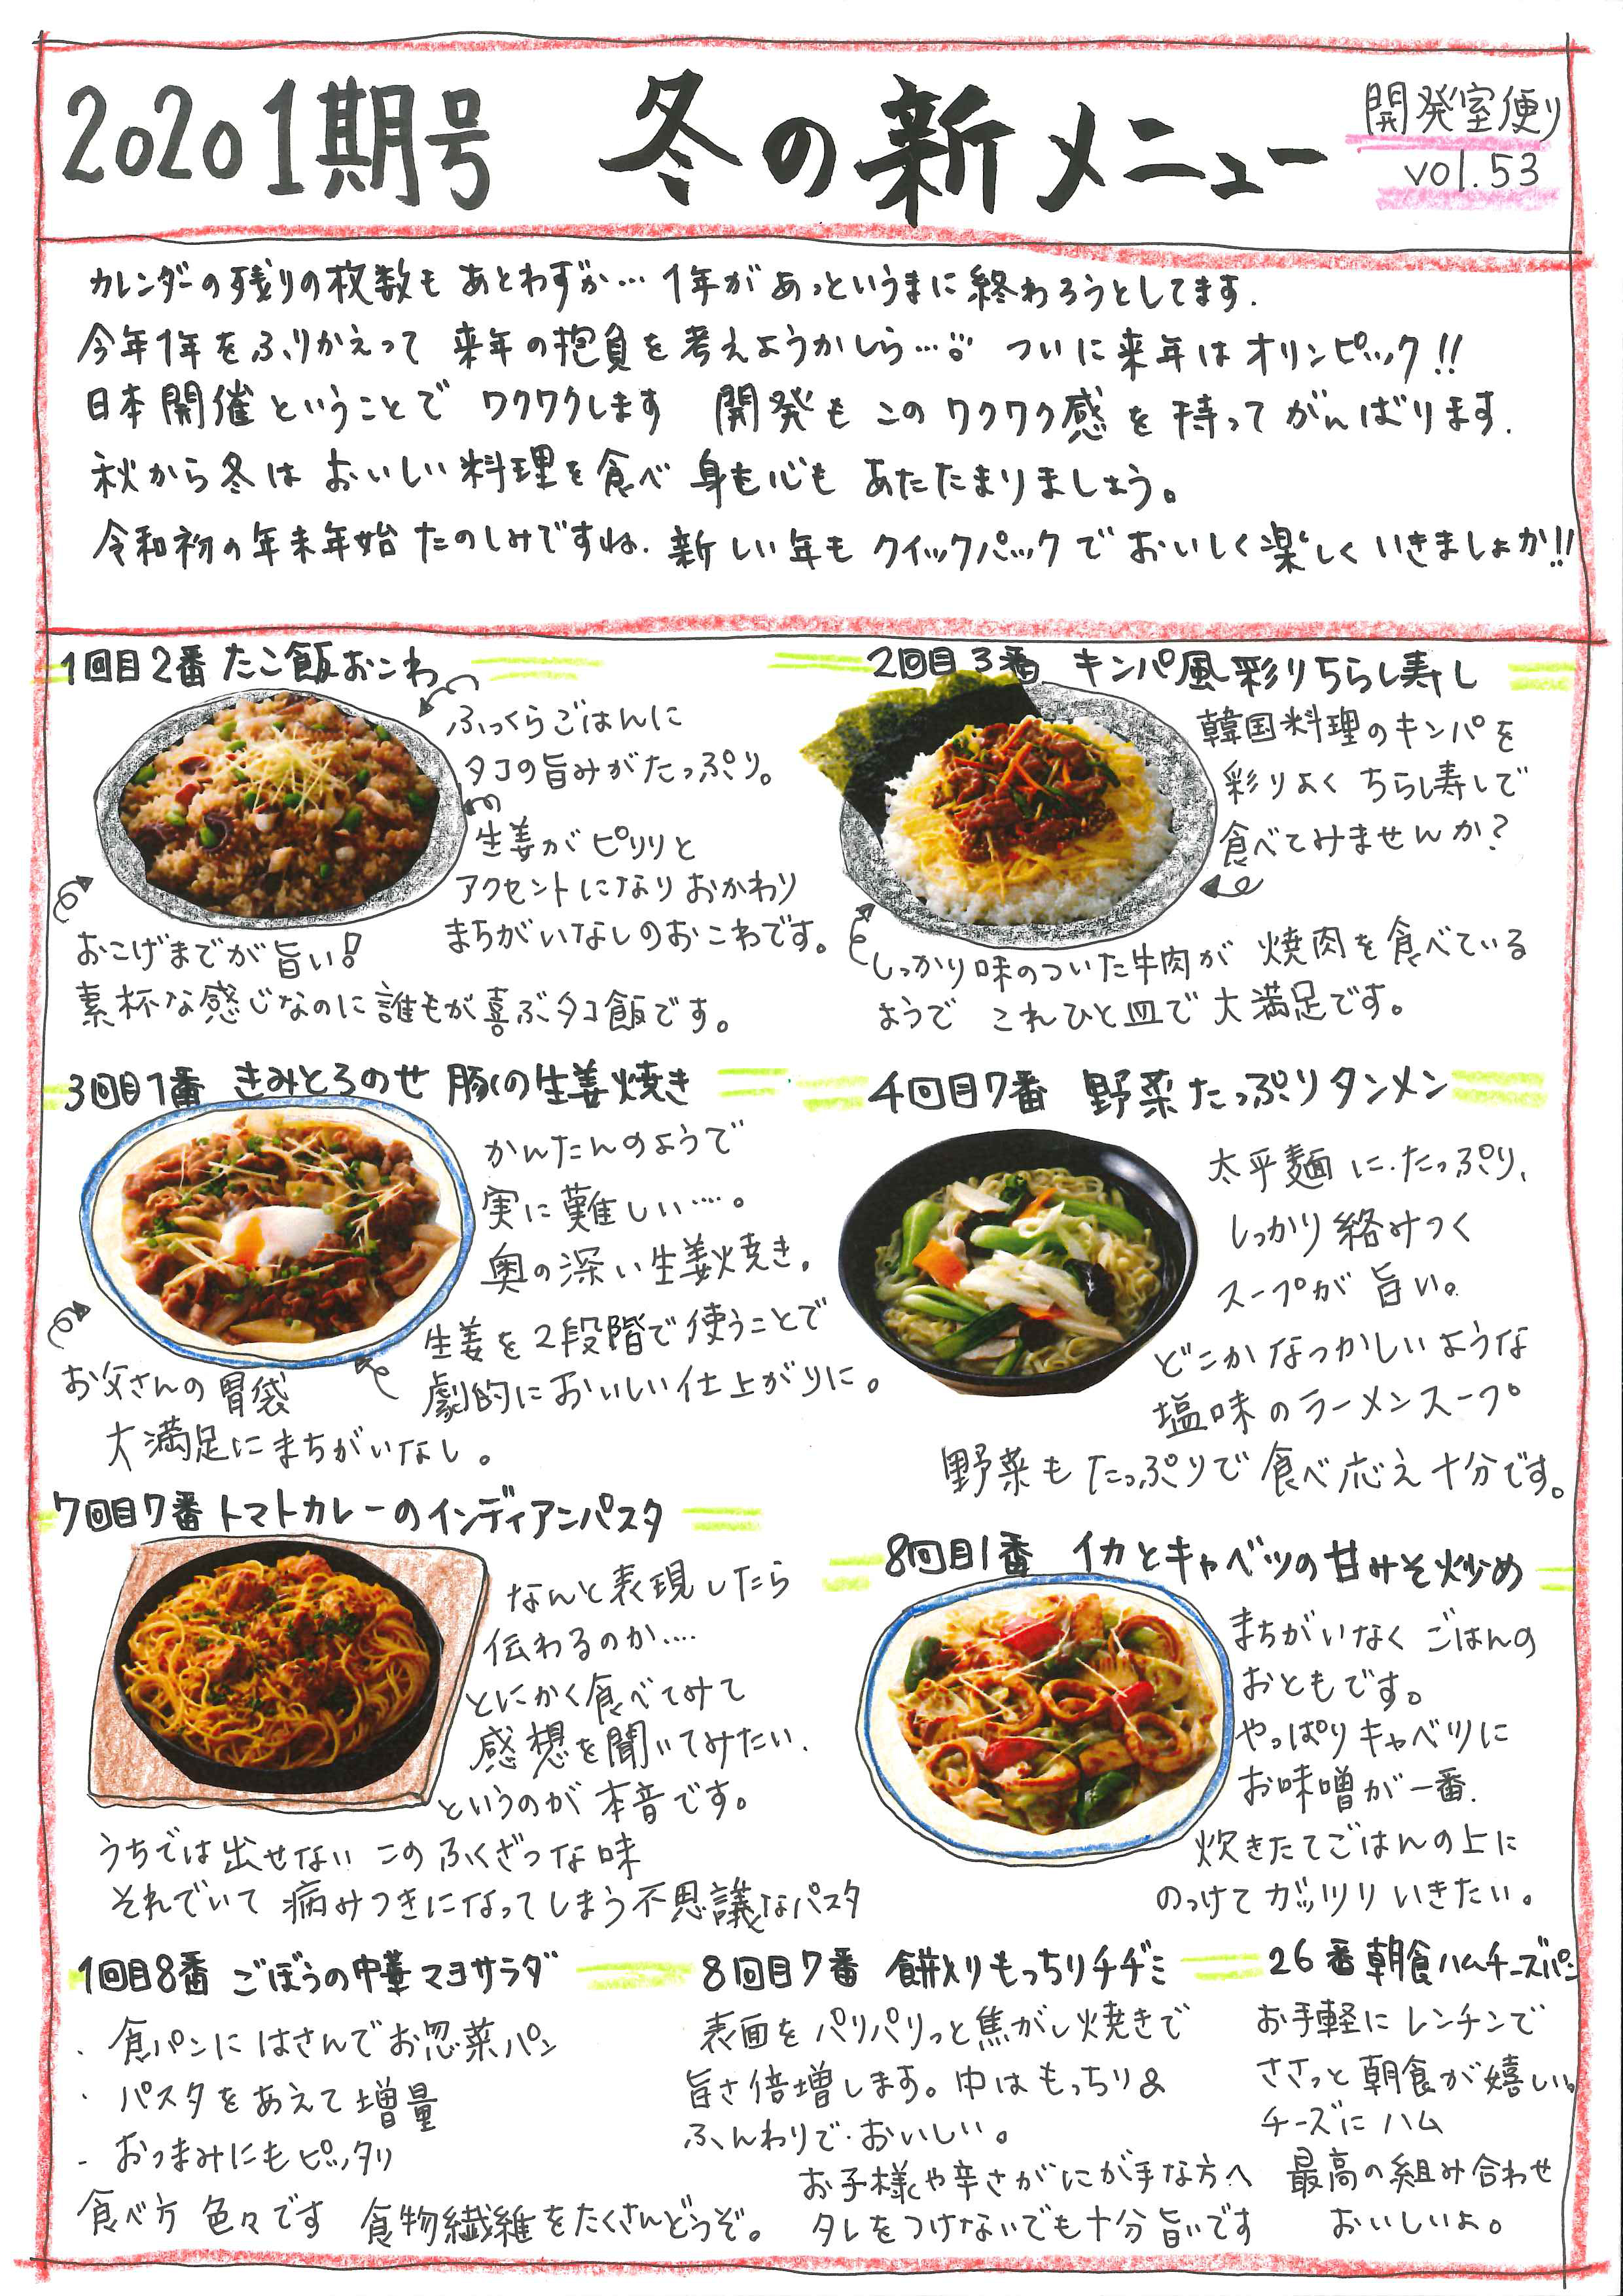 2020 1期号 冬の新メニュー
開発室便り
vol.53
カレンダーの残りの枚数も あとわずか… 1年があっというまに終わろうとしてます.
今年1年をふりかえって 来年の抱負を考えようかしら…。 ついに来年はオリンピック!!
日本開催ということで ワクワクします 開発も このワクワク感を持ってがんばります.
秋から冬は おいしい料理を食べ 身も心も あたたまりましょう。
令和初の年末年始 たのしみですね. 新しい年も クイックパックで おいしく楽しくいきましょか!!
1回目2番 たこ飯おこわ
ふっくらごはんに
タコの旨みがたっぷり。
生姜がピリリと
アクセントになりおかわり
まちがいなしのおこわです。
おこげまでが旨い!
素杯な感じなのに誰もが喜ぶタコ飯です。
2回目3番 キンパ風彩りちらし寿し
韓国料理のキンパを
彩りよく ちらし寿しで
食べてみませんか?
しっかり味のついた牛肉が 焼肉を食べている
ようで これひと皿で大満足です。
3回目1番 きみとろのせ 豚の生姜焼き
かんたんのようで
実に難しい….。
奥の深い生姜焼き.
生姜を2段階で使うことで
劇的においしい仕上がりに。
お父さんの胃袋
大満足にまちがいなし。
4回目7番 野菜たっぷりタンメン
太平麺に.たっぷり、
しっかり絡みつく
スープが旨い。
どこかなつかしいような
塩味のラーメンスープ
野菜もたっぷりで食べ応え十分です。
7回目7番 トマトカレーのインディアンパスタ
なんと表現したら
伝わるのか….
とにかく食べてみて
感想を聞いてみたい.
というのが本音です。
うちでは出せない このふくざつな味
それでいて 病みつきになってしまう不思議なパスタ
8回目1番 イカとキャベツの甘みそ炒め
まちがいなく ごはんの
おともです。
やっぱりキャベツに
お味噌が一番.
炊きたてごはんの上に
のっけてガッツリいきたい。
1回目8番 ごぼうの中華マヨサラダ
・食パンにはさんでお惣菜パン
・パスタをあえて増量
- おつまみにもピッタリ
食べ方 色々です 食物繊維をたくさんどうぞ。
8回目7番 餅入りもっちりチヂミ
表面をパリパリっと焦がし焼きで
旨さ倍増します。中はもっちり&
ふんわりで.おいしい。
お子様や辛さがにが手な方へ
タレをつけないでも十分旨いです
26番 朝食ハムチーズパン
お手軽にレンチンで
ささっと朝食が嬉しい。
チーズにハム
最高の組み合わせ
おいしいよ。